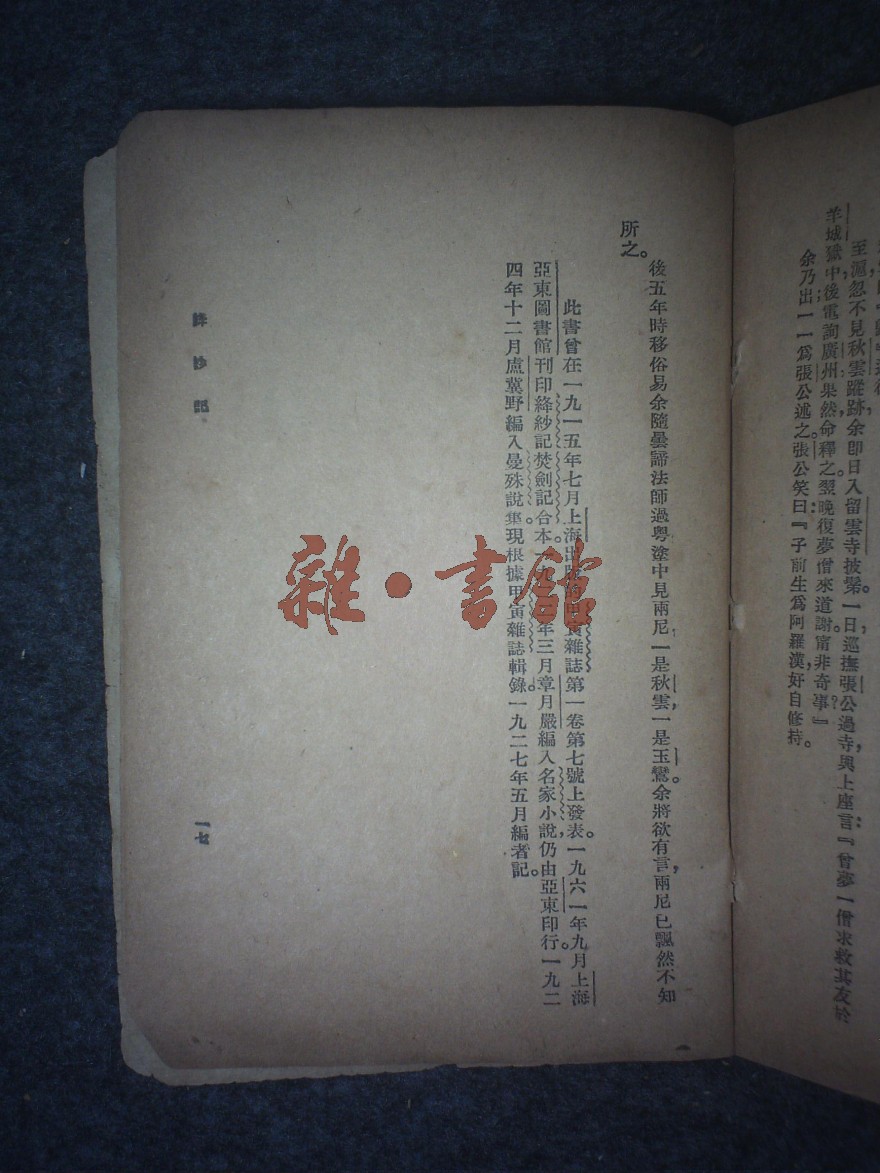 至滬,忽不見秋雲蹤跡余即日入留雲寺披鬀。一日,巡撫張公過寺,與上座言:『曾夢一僧求救其友於
羊城獄中;後電詢廣州果然,命釋之翌晚復夢僧來道謝。甯非奇事?』
余乃出一一爲張公述之。張公笑曰:『子前生爲阿羅漢,好自修持。
後五年時移俗易余隨曇諦法師過粵塗中見兩尼,一是秋雲,一是玉鸞。余將欲有言,兩尼已飄然不知
所之。
此書曾在一九一五年七月上海出版的甲寅雜誌第一卷第七號上發表。一九六一年九月上海
亞東圖書館刊印絳紗記焚劍記合本。年三月章月嚴編入名家小說,仍由亞東印行。一九二
四年十二月盧冀野編入曼殊說集。現根據甲寅雜誌輯錄。一九二七年五月編者記。
絳紗記
一七
雜·書館